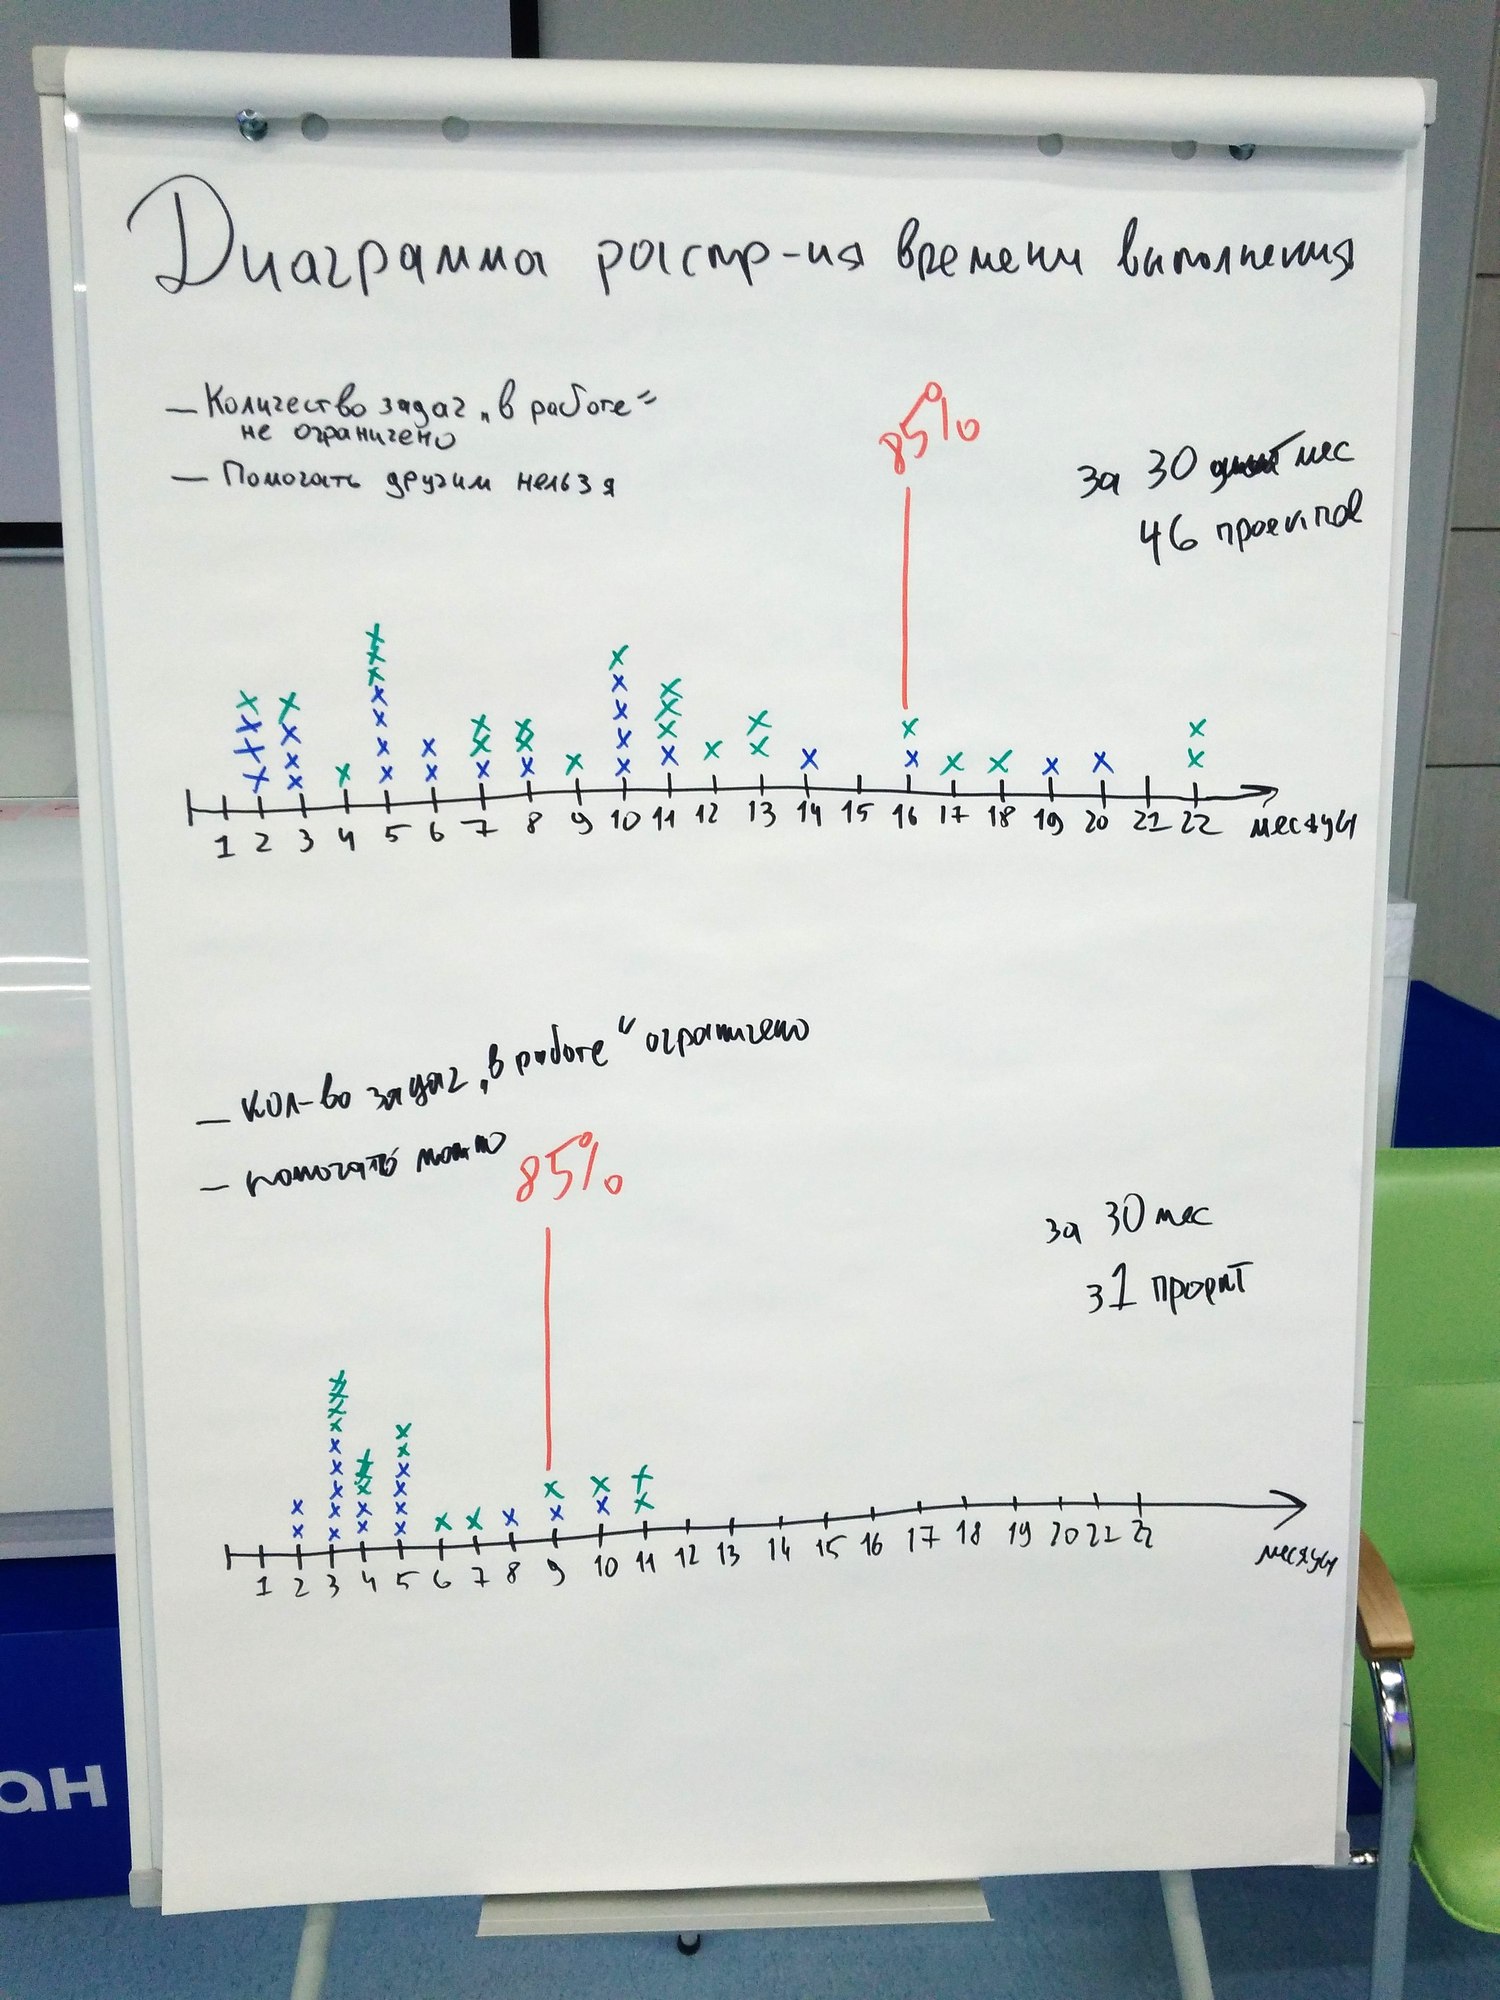 Диаграмма распр-ия времени выполнения
— Количество задач „в работе“
не ограничено
— Помогать другим нельзя
85%
за 30 мес
46 проектов
1 2 3 4 5 6 7 8 9 10 11 12 13 14 15 16 17 18 19 20 21 22 месяцы
— кол-во задач „в работе“ ограничено
— помогать можно
85%
за 30 мес
31 проект
1 2 3 4 5 6 7 8 9 10 11 12 13 14 15 16 17 18 19 20 21 22 месяцы
ан